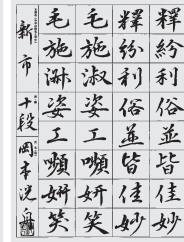 釋 紛 利 俗 並 皆 佳 妙
釋 紛 利 俗 並 皆 佳 妙
毛 施 淑 姿 工 嚬 妍 笑
毛 施 淑 姿 工 嚬 妍 笑
新市 十段 岡本洗舟